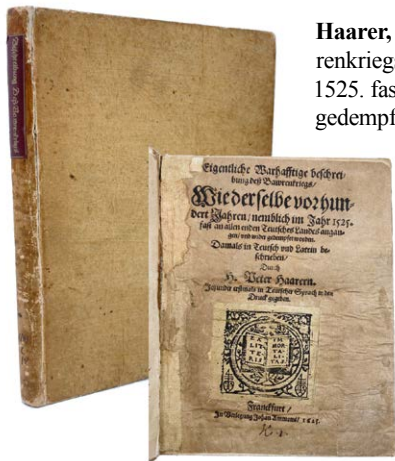 Haarer,
renkriegs
1525. fas
gedempf
Eigentliche Warhafftige beschrei-
bung deß Bawrenkriegs/
Wie derselbe vor hun-
dert Jahren/ nemblich im Jahr 1525.
fast an allen enden Teutsches Landes angan-
gen/ vnd wider gedempfft worden.
Damals in Teutsch vnd Latein be-
schrieben/
Durch
H. Peter Haarern.
Jetzunder erstmals in Teutscher Sprach in den
Druck gegeben.
EX LITTERIS IMMORTALITAS
Franckfurt/
In Verlegung Johan 1625.